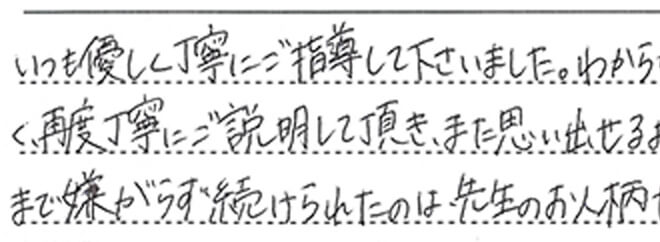 いつも優しく丁寧にご指導して下さいました。わから
く、再度丁寧にご説明して頂き、また思い出せるよ
まで嫌がらず続けられたのは、先生のお人柄